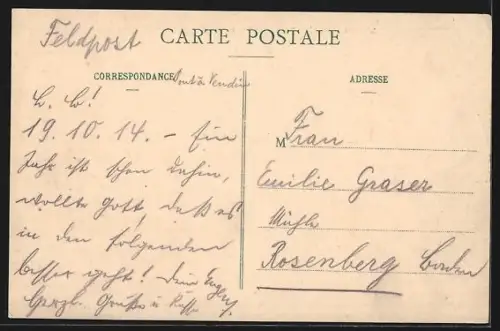 Feldpost
CARTE POSTALE
CORRESPONDANCE
Pont à Vendin
ADRESSE
L. L!
19.10.14. – Ein
Jahr ist schon dahin,
wollte Gott, daß es
in den folgenden
besser geht! Dein
Herzl. Grüße u. Küsse
M Frau
Emilie Graser
Mühle
Rosenberg Baden